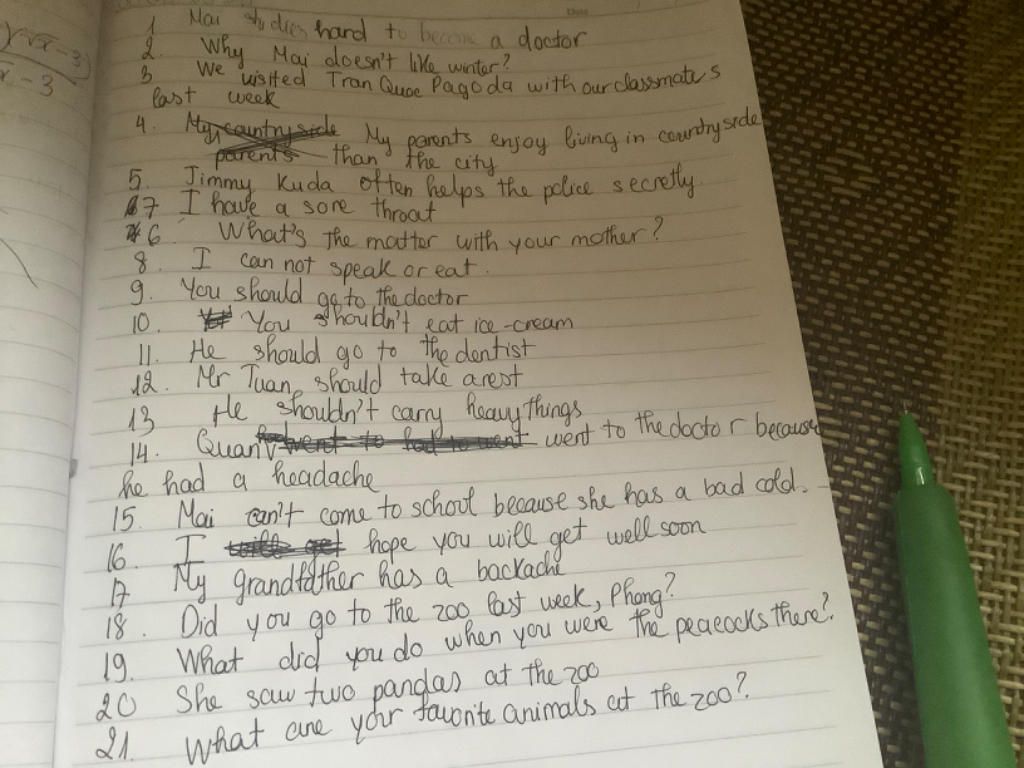 √x - 3)
x - 3
1 Mai studies hard to become a doctor
2. Why Mai doesn't like winter?
3 We visited Tran Quoc Pagoda with our classmates
last week
4. My countryside My parents enjoy living in countryside
parents than the city
5. Jimmy Kuda often helps the police secretly
7 I have a sore throat
6 What's the matter with your mother?
8. I can not speak or eat.
9. You should go to the doctor
10. You shouldn't eat ice-cream
11. He should go to the dentist
12. Mr Tuan should take a rest
13 He shouldn't carry heavy things
14. Quan went to had to went went to the doctor because
he had a headache
15. Mai can't come to school because she has a bad cold.
16. I will get hope you will get well soon
17 My grandfather has a backache
18. Did you go to the zoo last week, Phong?
19. What did you do when you were the peacocks there?
20 She saw two pandas at the zoo
21. What are your favorite animals at the zoo?